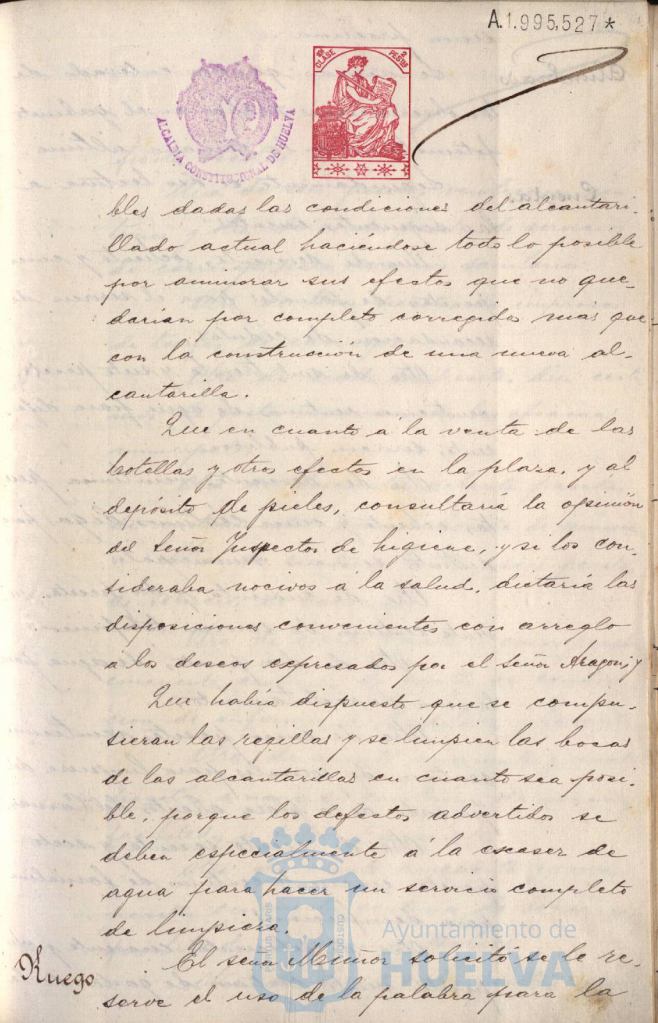 A.1.995,527*
ALCALDIA CONSTITUCIONAL DE HUELVA
CLASE
2 PESTAS
bles dadas las condiciones del alcantari-
llado actual haciendose todo lo posible
por aminorar sus efectos que no que-
darian por completo corregidos mas que
con la construcción de una nueva al-
cantarilla.
Que en cuanto á la venta de las
botellas y otros efectos en la plaza, y al
depósito de pieles, consultaría la opinión
del Señor Inspector de higiene, y si los con-
sideraba nocivos á la salud, dictaría las
disposiciones convenientes con arreglo
á los deseos expresados por el señor Aragon; y
Que había dispuesto que se compu-
sieran las regillas y se limpien las bocas
de las alcantarillas en cuanto sea posi-
ble, porque los defectos advertidos se
deben especialmente á la escaser de
agua para hacer un servicio completo
de limpieza.
Ruego
El señor Muñoz solicitó se le re-
serve el uso de la palabra para la
Ayuntamiento de
HUELVA